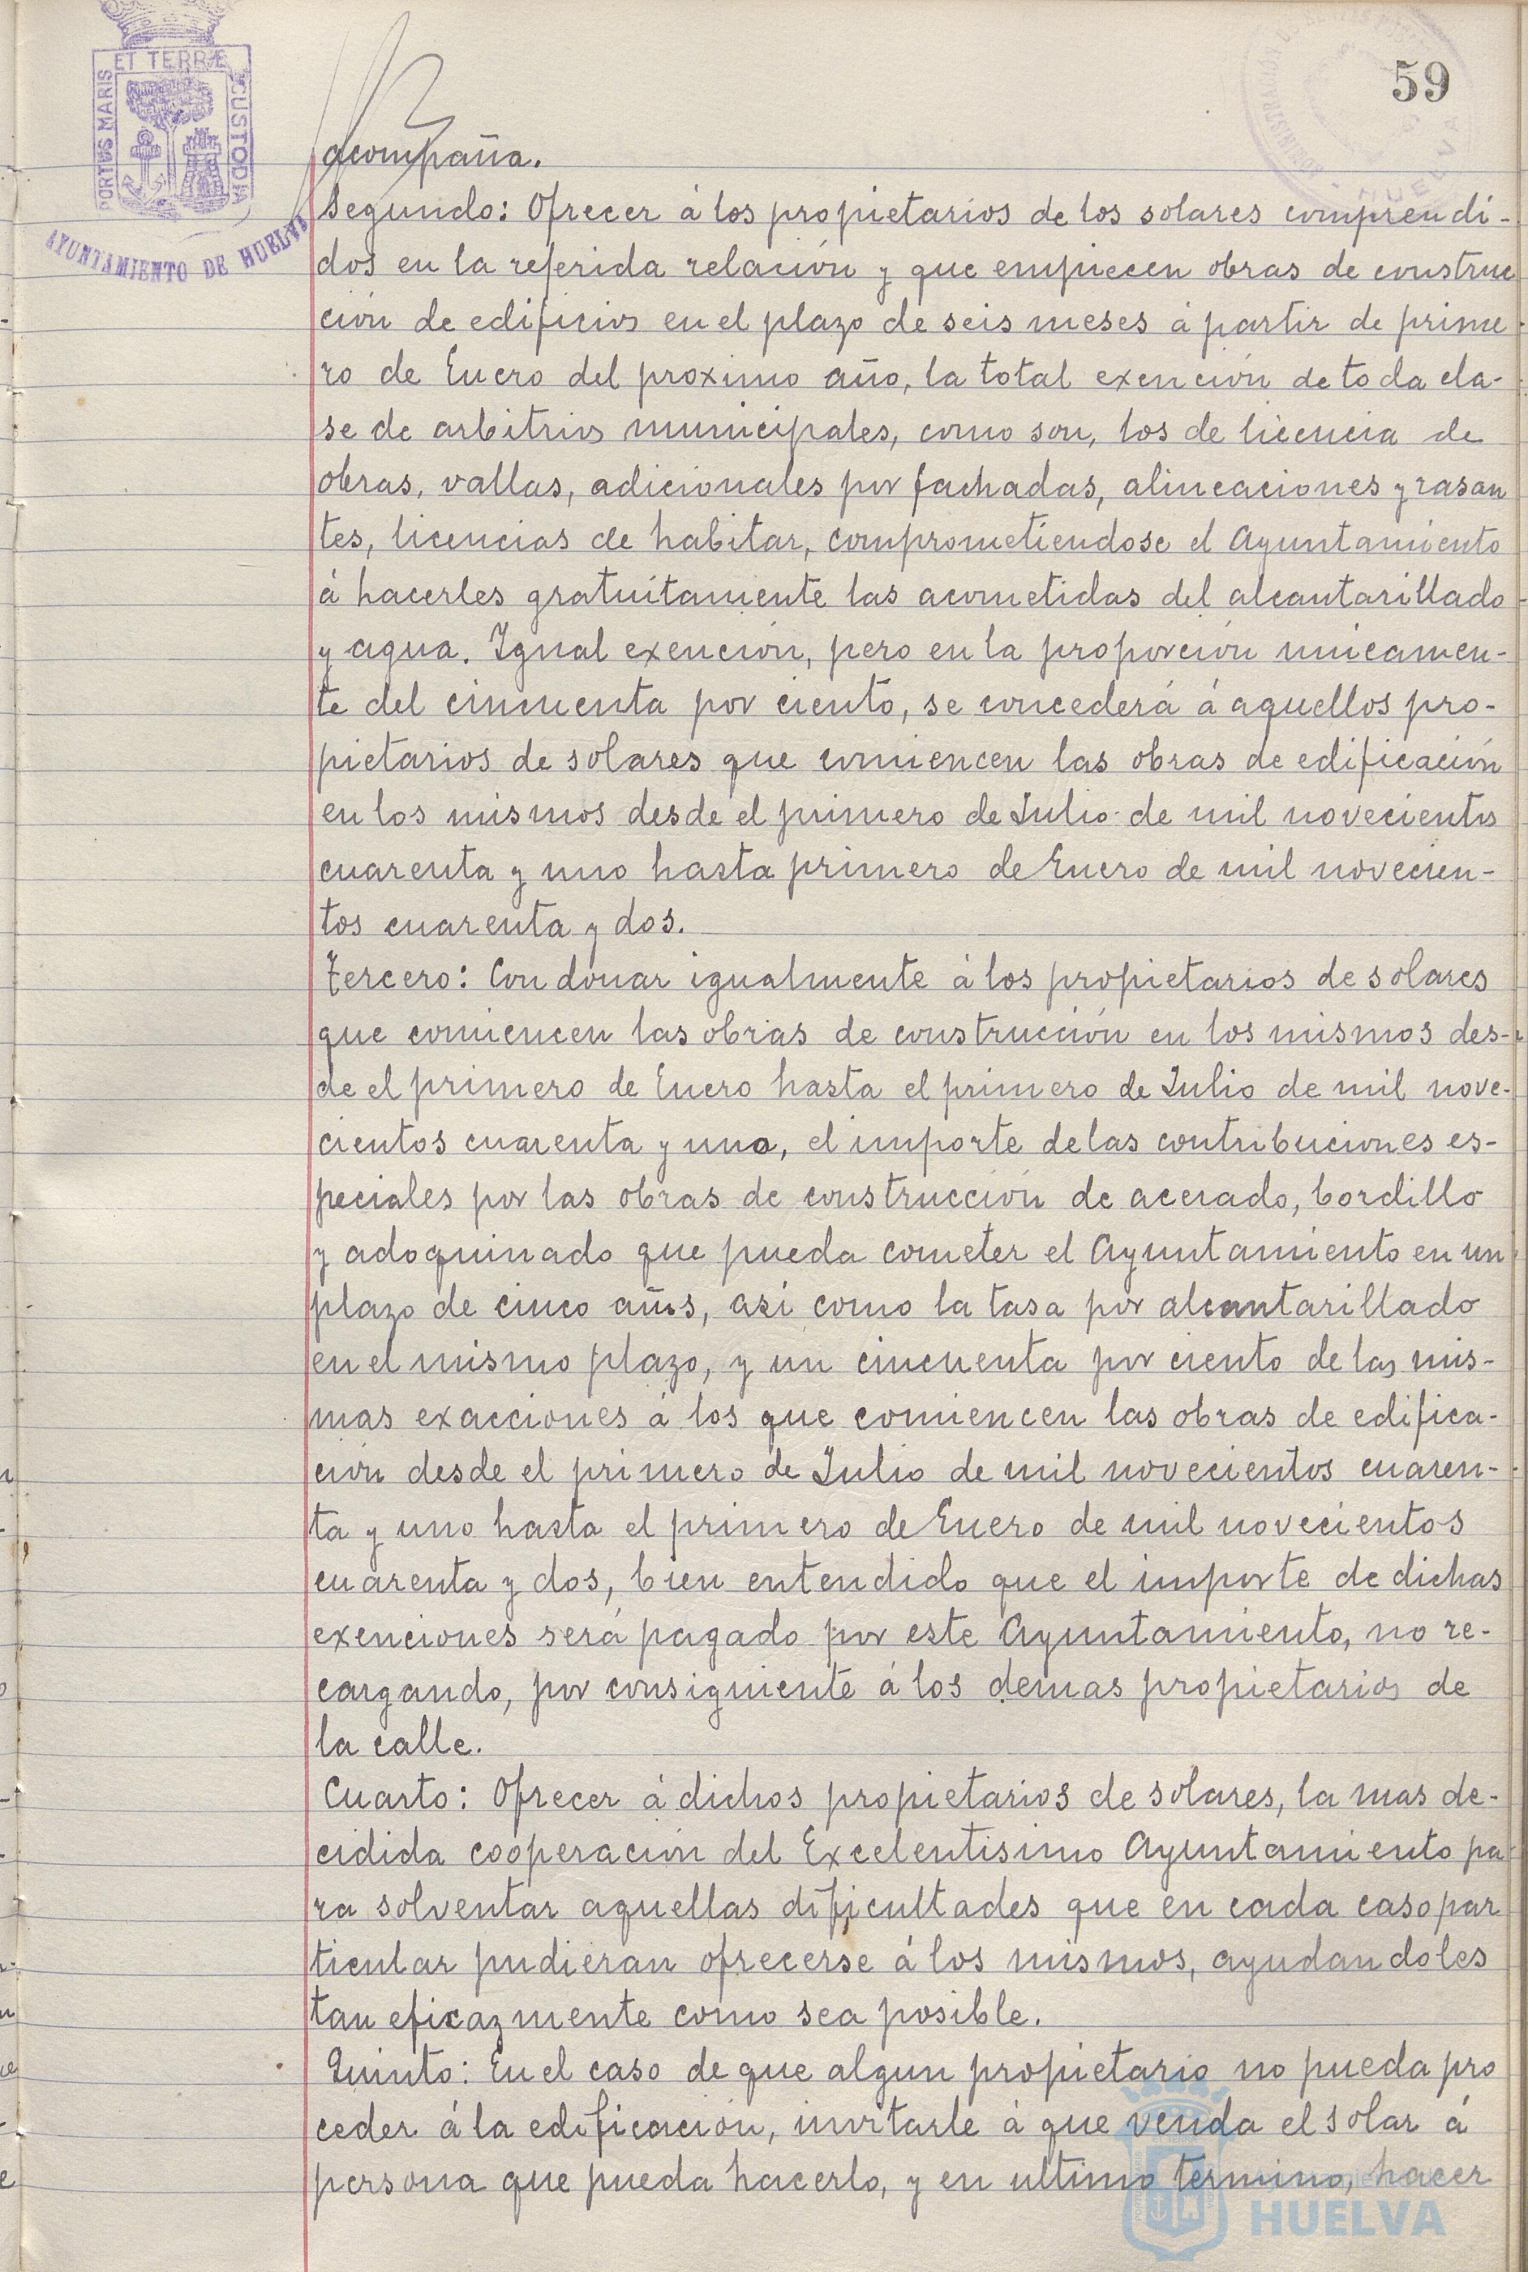 59
PORTUS MARIS ET TERRÆ CUSTODIA
AYUNTAMIENTO DE HUELVA
acompaña.
Segundo: Ofrecer á los propietarios de los solares comprendi-
dos en la referida relación y que empiecen obras de construc
ción de edificios en el plazo de seis meses á partir de prime-
ro de Enero del proximo año, la total exención de toda cla-
se de arbitrios municipales, como son, los de licencia de
obras, vallas, adicionales por fachadas, alineaciones y rasan
tes, licencias de habitar, comprometiendose el Ayuntamiento
á hacerles gratuitamente las acometidas del alcantarillado
y agua. Igual exención, pero en la proporción unicamen-
te del cincuenta por ciento, se concederá á aquellos pro-
pietarios de solares que comiencen las obras de edificación
en los mismos desde el primero de Julio de mil novecientos
cuarenta y uno hasta primero de Enero de mil novecien-
tos cuarenta y dos.
Tercero: Condonar igualmente á los propietarios de solares
que comiencen las obras de construcción en los mismos des-
de el primero de Enero hasta el primero de Julio de mil nove-
cientos cuarenta y uno, el importe de las contribuciones es-
peciales por las obras de construcción de acerado, bordillo
y adoquinado que pueda cometer el Ayuntamiento en un
plazo de cinco años, asi como la tasa por alcantarillado
en el mismo plazo, y un cincuenta por ciento de las mis-
mas exacciones á los que comiencen las obras de edifica-
ción desde el primero de Julio de mil novecientos cuaren-
ta y uno hasta el primero de Enero de mil novecientos
cuarenta y dos, bien entendido que el importe de dichas
exenciones será pagado por este Ayuntamiento, no re-
cargando, por consiguiente á los demas propietarios de
la calle.
Cuarto: Ofrecer á dichos propietarios de solares, la mas de-
cidida cooperación del Excelentisimo Ayuntamiento pa
ra solventar aquellas dificultades que en cada caso par
ticular pudieran ofrecerse á los mismos, ayudandoles
tan eficazmente como sea posible.
Quinto: En el caso de que algun propietario no pueda pro
ceder á la edificación, invitarle á que venda el solar á
persona que pueda hacerlo, y en ultimo termino, hacer
HUELVA